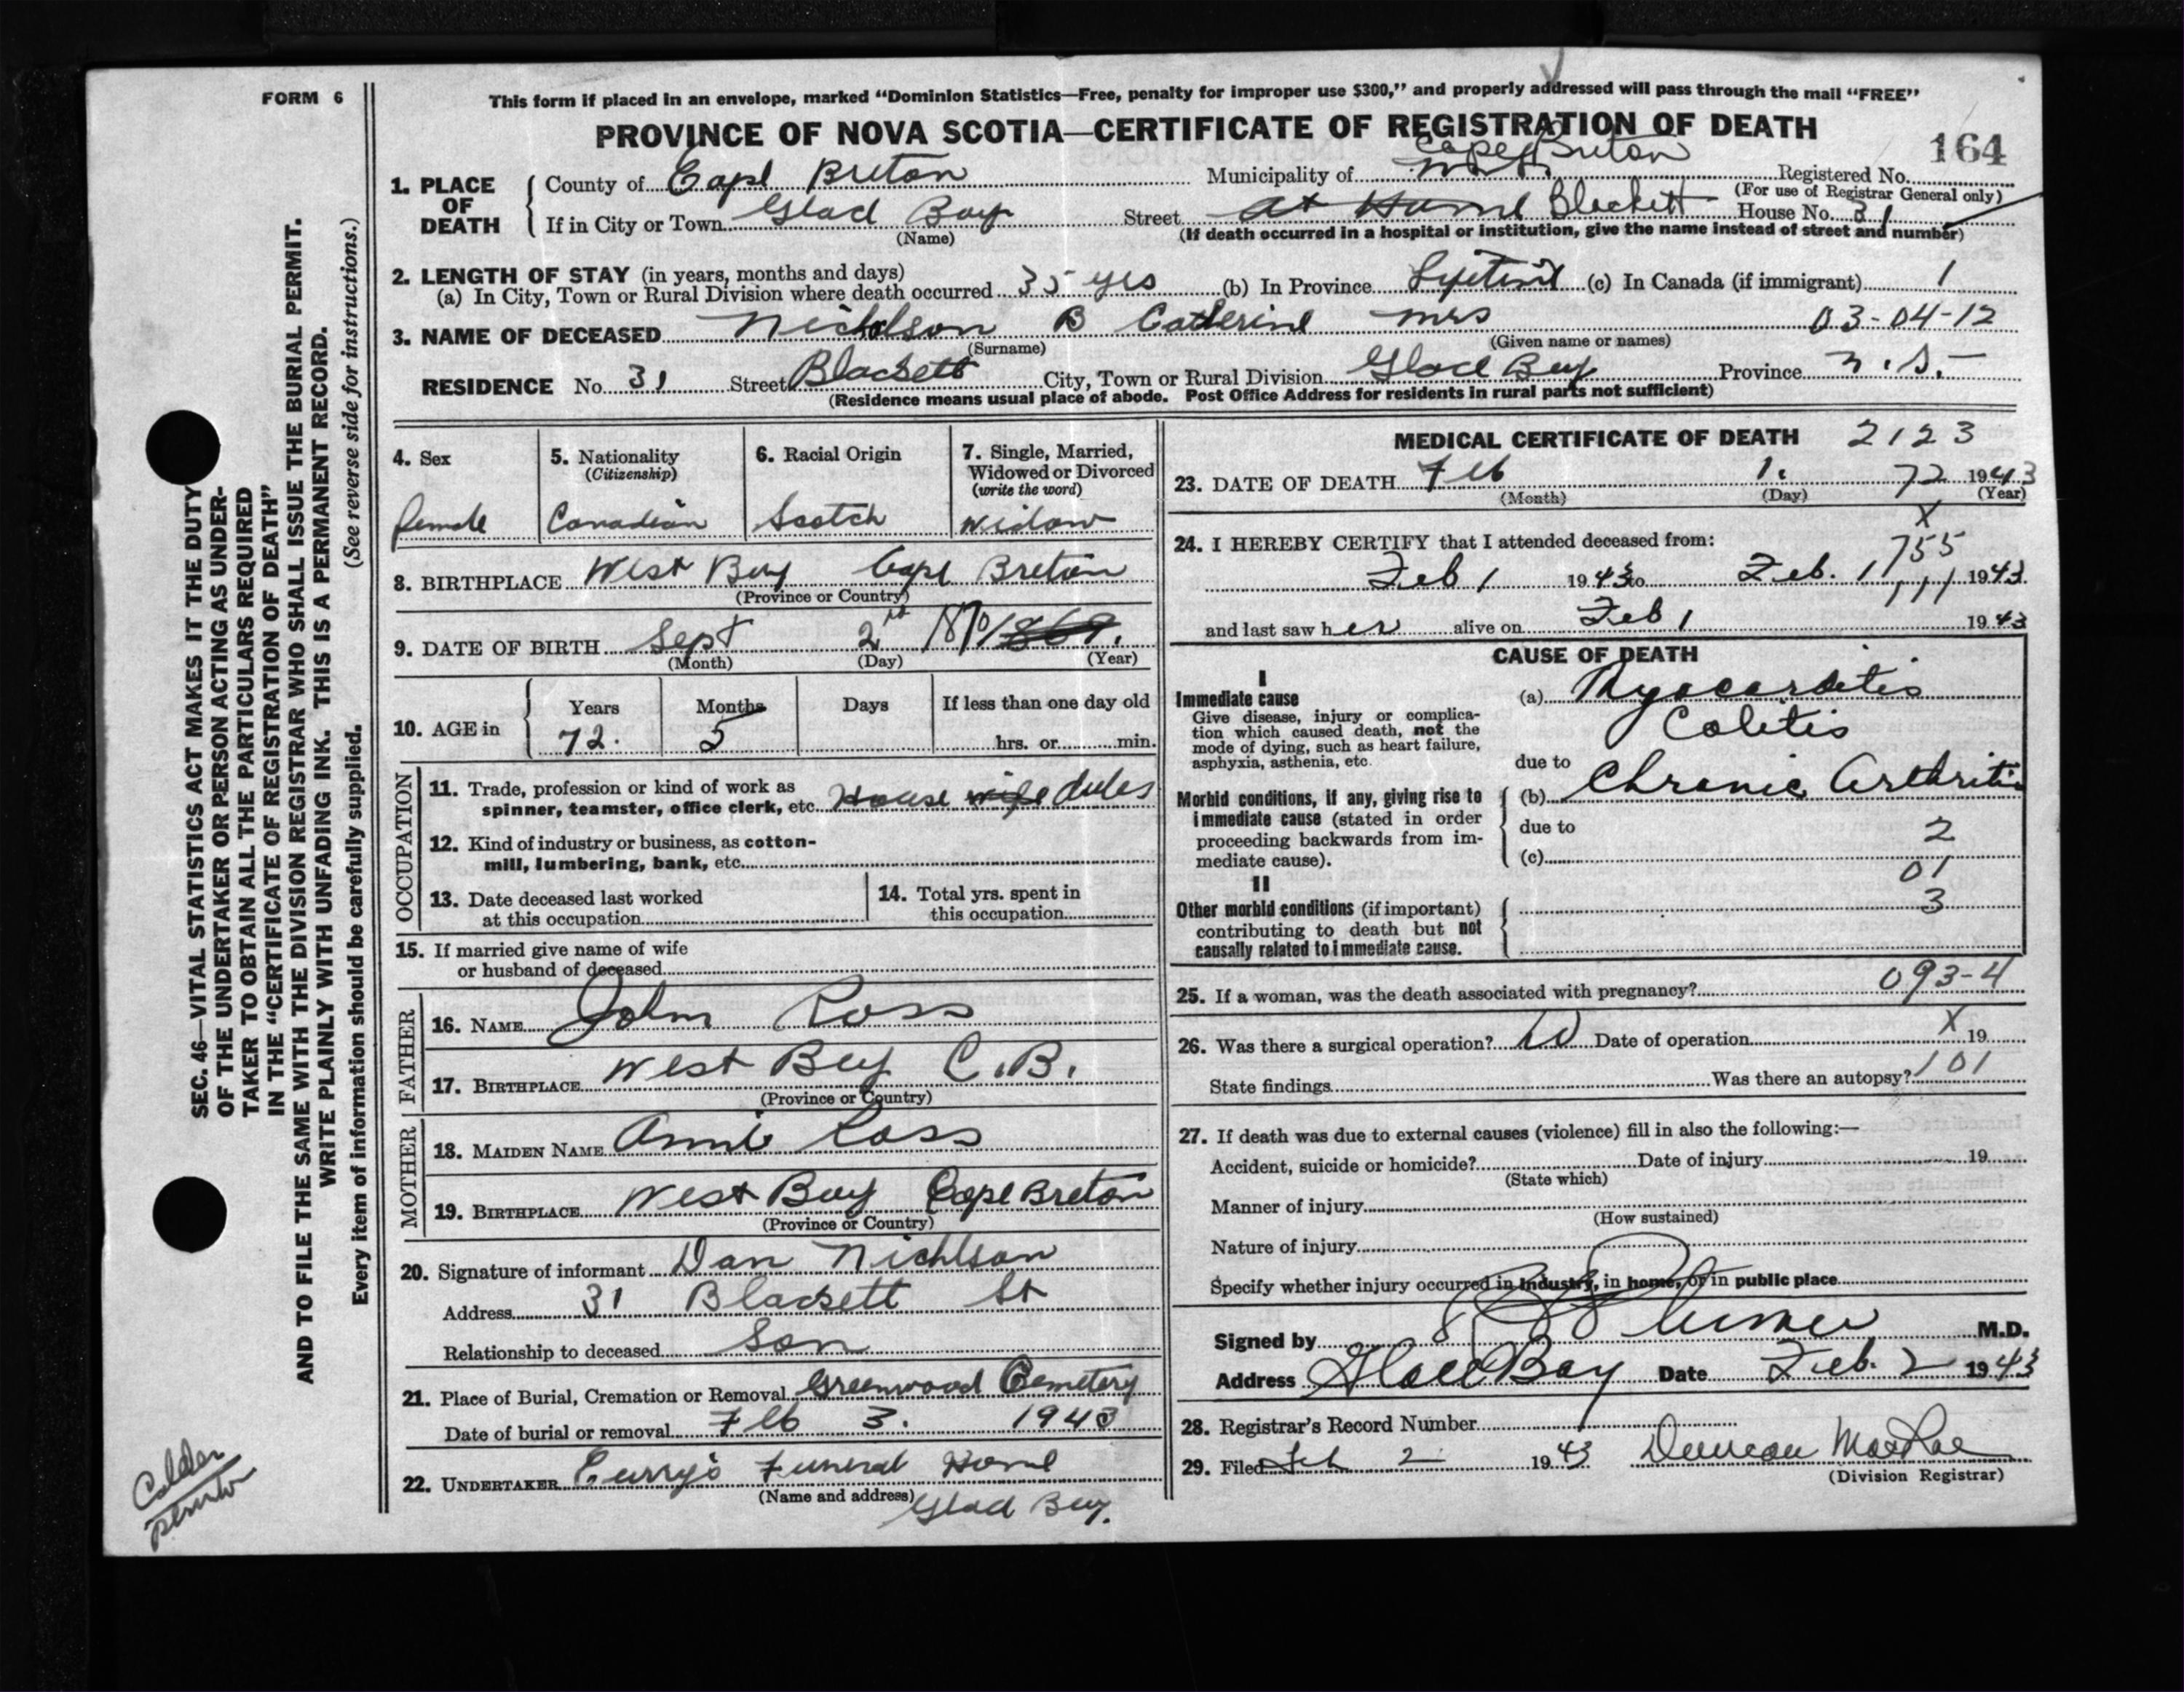 FORM 6
This form if placed in an envelope, marked “Dominion Statistics—Free, penalty for improper use $300,” and properly addressed will pass through the mail “FREE”
PROVINCE OF NOVA SCOTIA—CERTIFICATE OF REGISTRATION OF DEATH
164
1. PLACE OF DEATH
County of Cape Breton Municipality of Cape Breton Registered No.
(For use of Registrar General only)
If in City or Town Glace Bay Street At Home Blackett House No. 31
(Name) (If death occurred in a hospital or institution, give the name instead of street and number)
2. LENGTH OF STAY (in years, months and days)
(a) In City, Town or Rural Division where death occurred 35 yrs (b) In Province Lifetime (c) In Canada (if immigrant) 1
3. NAME OF DECEASED Nicholson B Catherine Mrs 03-04-12
(Surname) (Given name or names)
RESIDENCE No. 31 Street Blackett City, Town or Rural Division Glace Bay Province N.S.
(Residence means usual place of abode. Post Office Address for residents in rural parts not sufficient)
4. Sex
female
5. Nationality
(Citizenship)
Canadian
6. Racial Origin
Scotch
7. Single, Married,
Widowed or Divorced
(write the word)
Widow
8. BIRTHPLACE West Bay Cape Breton
(Province or Country)
9. DATE OF BIRTH Sept 2 1870 1869.
(Month) (Day) (Year)
10. AGE in
Years Months Days If less than one day old
72. 5 hrs. or min.
OCCUPATION
11. Trade, profession or kind of work as
spinner, teamster, office clerk, etc. House wife duties
12. Kind of industry or business, as cotton-
mill, lumbering, bank, etc.
13. Date deceased last worked
at this occupation
14. Total yrs. spent in
this occupation
15. If married give name of wife
or husband of deceased
FATHER
16. NAME John Ross
17. BIRTHPLACE West Bay C.B.
(Province or Country)
MOTHER
18. MAIDEN NAME Annie Ross
19. BIRTHPLACE West Bay Cape Breton
(Province or Country)
20. Signature of informant Dan Nichlson
Address 31 Blackett St
Relationship to deceased Son
21. Place of Burial, Cremation or Removal Greenwood Cemetery
Date of burial or removal Feb 3. 1943
22. UNDERTAKER Curry's Funeral Home
(Name and address) Glace Bay.
MEDICAL CERTIFICATE OF DEATH 2123
23. DATE OF DEATH Feb 1. 72 1943
(Month) (Day) (Year)
X
24. I HEREBY CERTIFY that I attended deceased from:
755
Feb 1 1943 to Feb. 1 1943
111
and last saw her alive on Feb 1 1943
CAUSE OF DEATH
I
Immediate cause
Give disease, injury or complica-
tion which caused death, not the
mode of dying, such as heart failure,
asphyxia, asthenia, etc.
(a) Myocarditis
Colitis
due to
Morbid conditions, if any, giving rise to
immediate cause (stated in order
proceeding backwards from im-
mediate cause).
(b) Chronic Arthritis
due to
2
(c)
01
II
Other morbid conditions (if important)
contributing to death but not
causally related to immediate cause.
3
093-4
25. If a woman, was the death associated with pregnancy?
26. Was there a surgical operation? Date of operation X 19
State findings Was there an autopsy? 101
27. If death was due to external causes (violence) fill in also the following:—
Accident, suicide or homicide? Date of injury 19
(State which)
Manner of injury
(How sustained)
Nature of injury
Specify whether injury occurred in industry, in home, or in public place
Signed by M.D.
Address Glace Bay Date Feb. 2 1943
28. Registrar's Record Number
29. Filed Feb 2 1943 Duncan MacRae
(Division Registrar)
SEC. 46—VITAL STATISTICS ACT MAKES IT THE DUTY
OF THE UNDERTAKER OR PERSON ACTING AS UNDER-
TAKER TO OBTAIN ALL THE PARTICULARS REQUIRED
IN THE “CERTIFICATE OF REGISTRATION OF DEATH”
AND TO FILE THE SAME WITH THE DIVISION REGISTRAR WHO SHALL ISSUE THE BURIAL PERMIT.
WRITE PLAINLY WITH UNFADING INK. THIS IS A PERMANENT RECORD.
Every item of information should be carefully supplied. (See reverse side for instructions.)
Calder